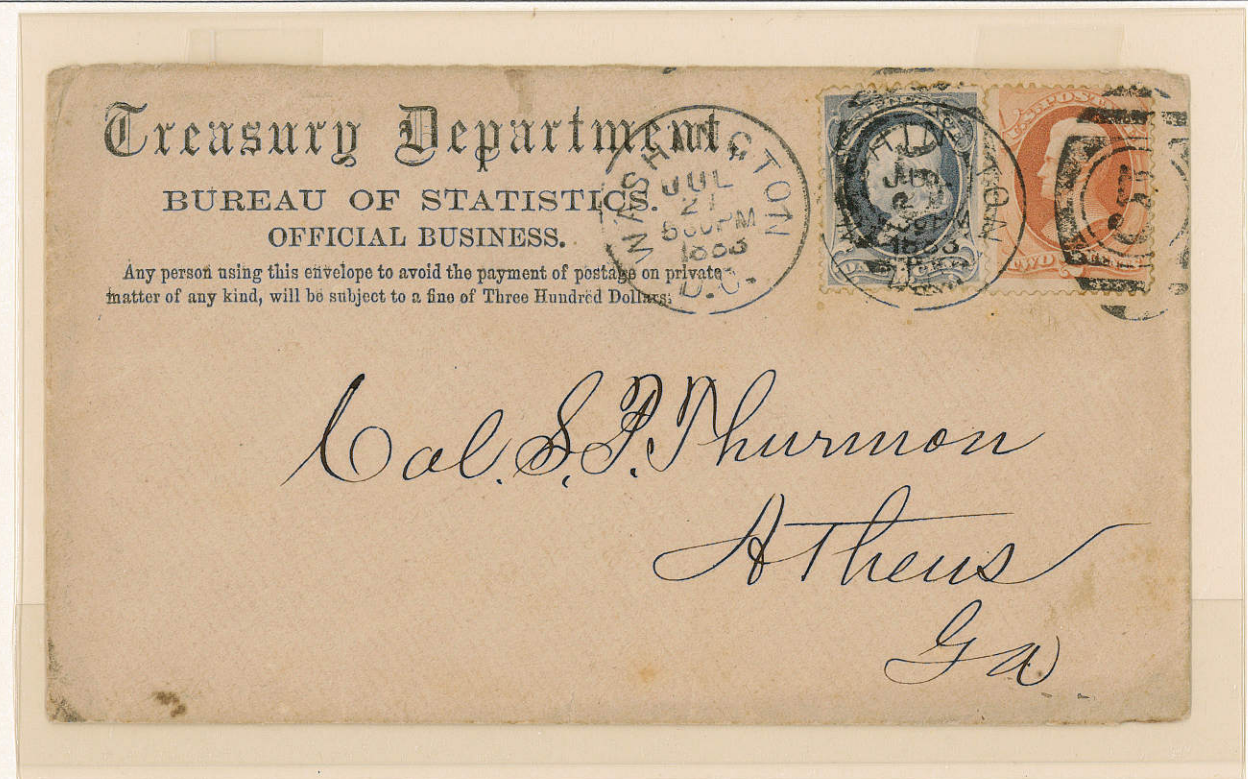 Treasury Department,
BUREAU OF STATISTICS.
OFFICIAL BUSINESS.
Any person using this envelope to avoid the payment of postage on private
matter of any kind, will be subject to a fine of Three Hundred Dollars.
WASHINGTON
JUL
21
5 30PM
1883
D.C.
Col. S. P. Thurmon
Athens
Ga